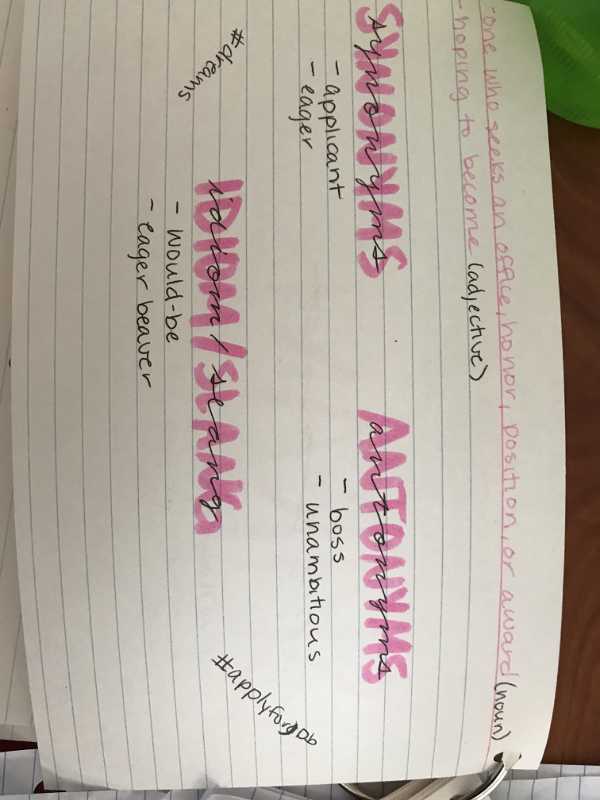 -one who seeks an office, honor, position, or award (noun)
-hoping to become (adjective)
SYNONYMS
synonyms
- applicant
- eager
ANTONYMS
antonyms
- boss
- unambitious
#dreams
IDIOM/SLANG
idiom/slang
- would-be
- eager beaver
#applyforjob